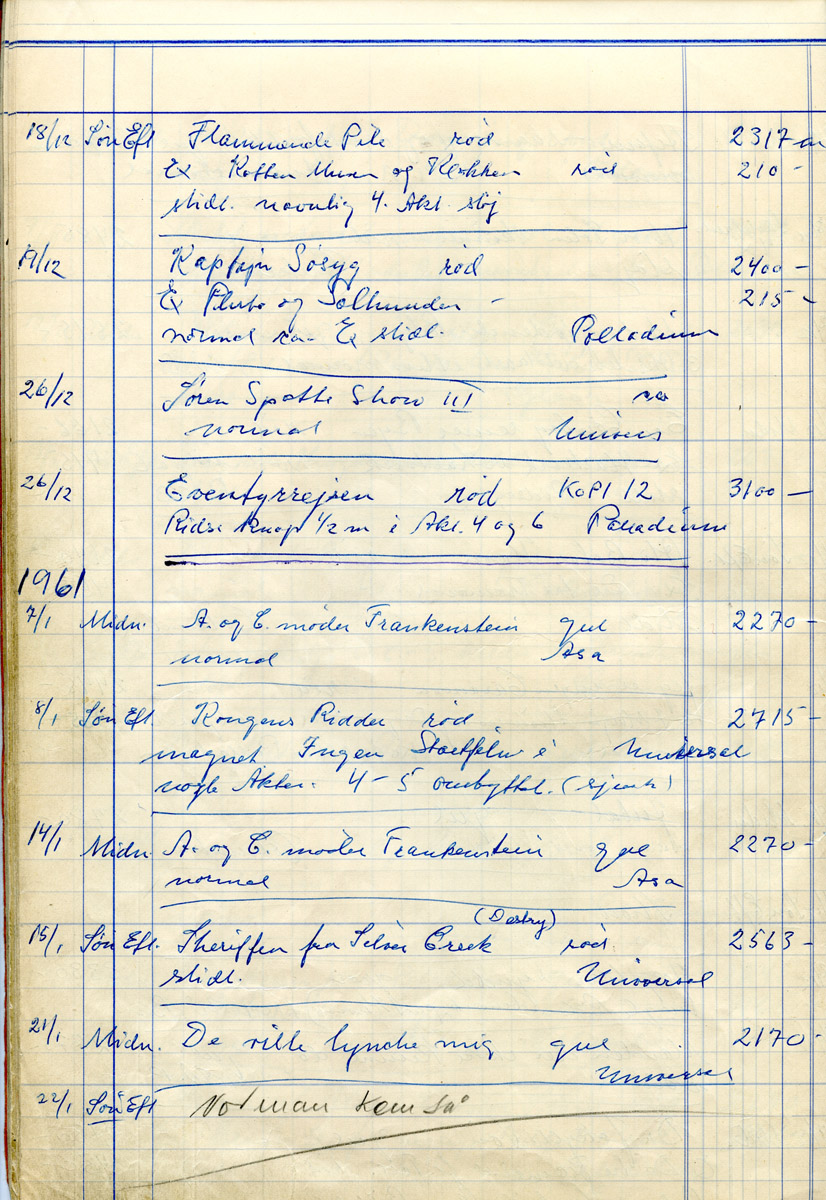 18/12 Søn Eft Flammende Pile rød 2317 m
Ex Katten Musen og Klokken rød 210 -
slidt. navnlig 4. Akt. støj
19/12 Kaptajn Søsyg rød 2400 -
Ex Pluto og Solhunden - 215 -
normal Ex slidt. Palladium
26/12 Søren Spætte Show III
normal Univers
26/12 Eventyrrejsen rød KOPI 12 3100 -
Ridse Knap 1/2 m i Akt. 4 og 6 Palladium
1961
7/1 Midn. A. og C. møder Frankenstein gul 2270 -
normal Asa
8/1 Søn Eft. Kongens Ridder rød 2715 -
magnet. Ingen Startfilm i Universal
nogle Akter. 4 - 5 ombyttet.
14/1 Midn. A. og C. møder Frankenstein gul 2270 -
normal Asa
(Destry)
15/1 Søn Eft. Sheriffen fra Silver Creek rød. 2563 -
slidt. Universal
21/1 Midn. De ville lynche mig gul 2170 -
Universal
22/1 Søn Eft Norman Kom Så